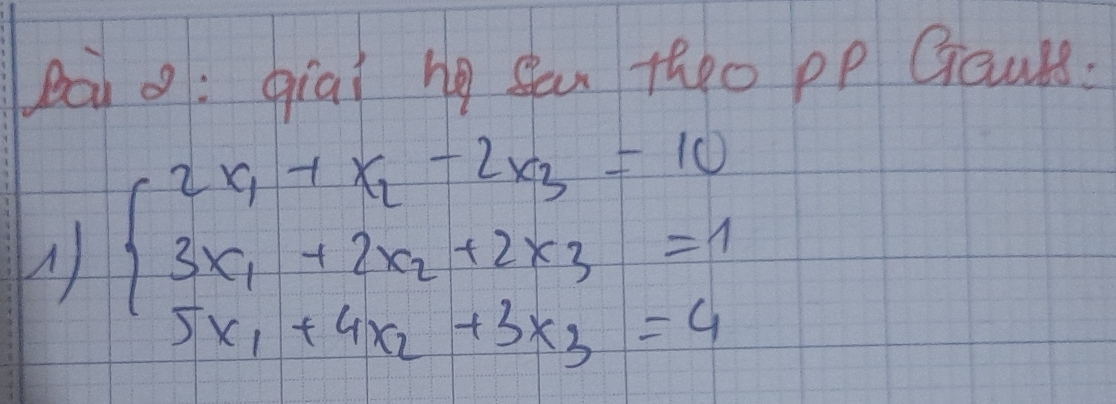 Bài 2: giải hệ sau theo pp Gauss:
2x₁ + x₂ - 2x₃ = 10
1) { 3x₁ + 2x₂ + 2x₃ = 1
5x₁ + 4x₂ + 3x₃ = 4